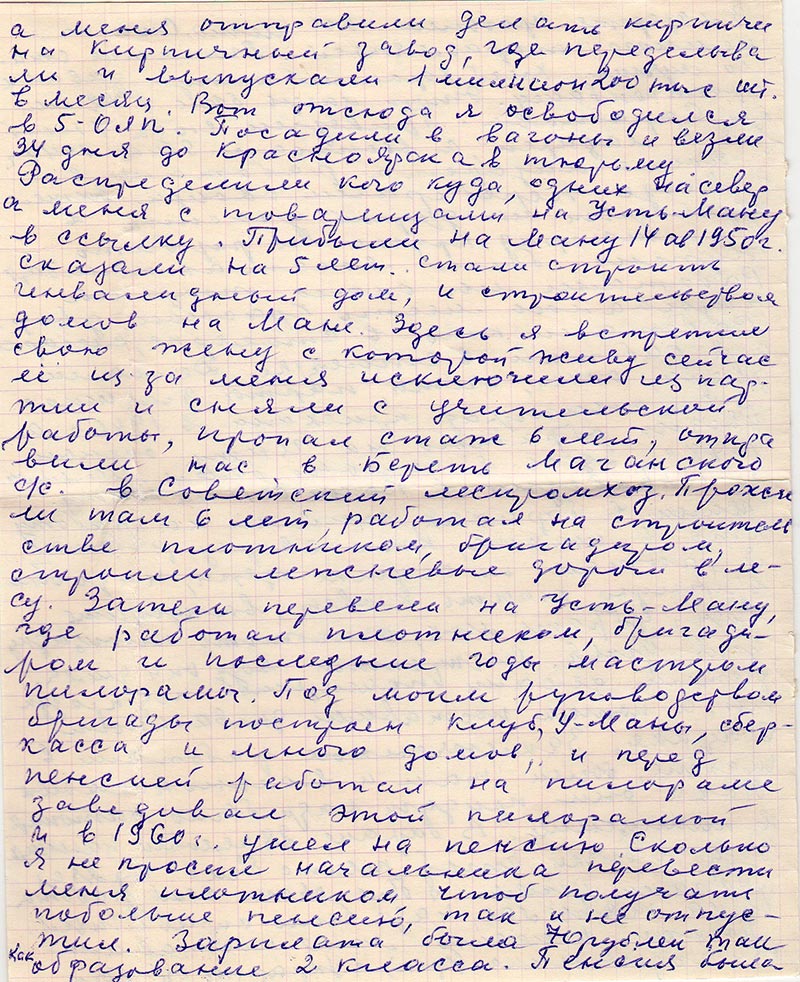 а меня отправили делать кирпичи
на кирпичный завод, где переделыва
ли и выпускали 1 миллион 200 тыс шт.
в месяц. Вот отсюда я освободился
в 5-ОЛП. Посадили в вагоны и везли
34 дня до Красноярска в тюрьму.
Распределили кого куда, одних на север
а меня с товарищами на Усть-Ману
в ссылку. Прибыли на Ману 14 ав 1950 г.
сказали на 5 лет. стали строить
инвалидный дом, и строительством
домов на Мане. Здесь я встретил
свою жену с которой живу сейчас
её из за меня исключили из пар-
тии и сняли с учительской
работы, пропал стаж 6 лет, отпра
вили нас в Береть Маганского
с/с. в Советский леспромхоз. Прожи
ли там 6 лет, работал на строитель
стве плотником, бригадиром,
строили лежневые дороги в ле-
су. Затем перевели на Усть-Ману,
где работал плотником, бригади-
ром и последние годы мастером
пилорамы. Под моим руководством
бригады построен клуб, У-Маны, сбер-
касса и много домов, и перед
пенсией работал на пилораме
заведовал этой пилорамой
и в 1960 г. ушел на пенсию. Сколько
я не просил начальника перевести
меня плотником, чтоб получать
побольше пенсию, так и не отпус-
тил. Зарплата была 70 рублей так
как образование 2 класса. Пенсия была